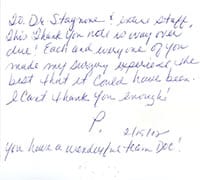 To: Dr. Staymore & entire staff,
this thank you note is way over
due! Each and everyone of you
made my surgery experience the
best that it could have been.
I can't thank you enough!
P.
2/15/12
You have a wonderful team Doc!